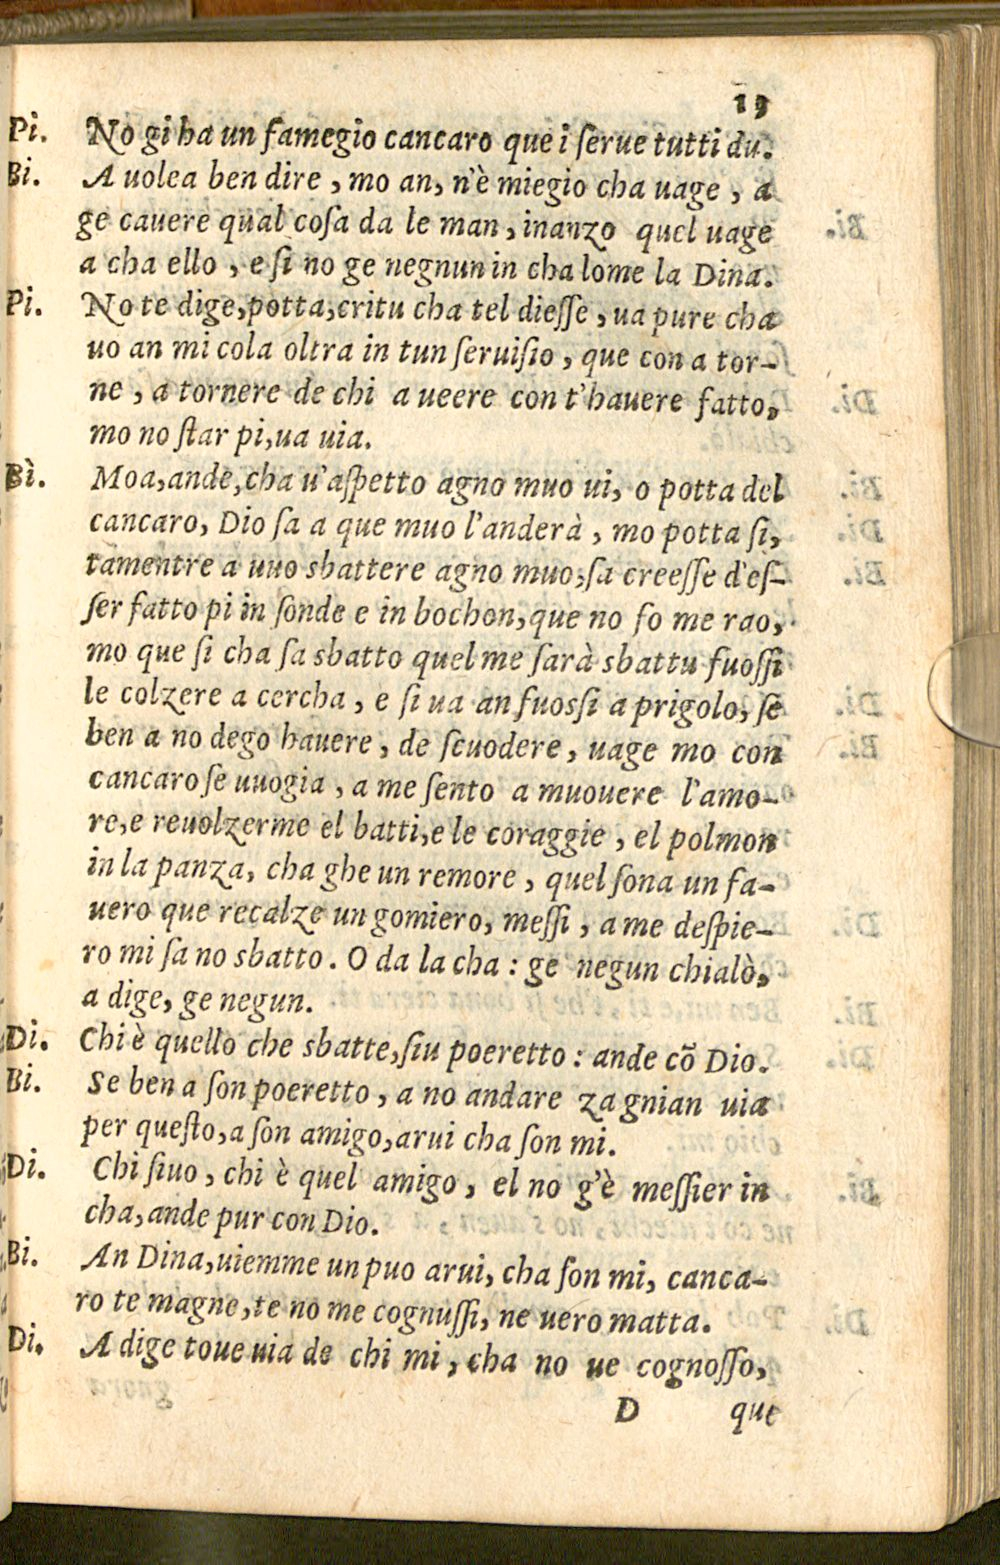 19
Pi. No gi ha un famegio cancaro que i ſerue tutti du.
Bi. A uolea ben dire, mo an, n'è miegio cha uage, a
ge cauere qual coſa da le man, inanzo quel uage
a cha ello, e ſi no ge negnun in cha lome la Dina.
Pi. No te dige, potta, critu cha tel dieſſe, ua pure cha
uo an mi cola oltra in tun ſeruiſio, que con a tor-
ne, a tornere de chi a ueere con t'hauere fatto,
mo no ſtar pi, ua uia.
Bì. Moa, ande, cha u'aſpetto agno muo ui, o potta del
cancaro, Dio ſa a que muo l'anderà, mo potta ſi,
tamentre a uuo sbattere agno muo, ſa creeſſe d'eſ-
ſer fatto pi in ſonde e in bochon, que no ſo me rao,
mo que ſi cha ſa sbatto quel me ſarà sbattu fuoſſi
le colzere a cercha, e ſi ua an fuosſi a prigolo, ſe
ben a no dego hauere, de ſcuodere, uage mo con
cancaro ſe uuogia, a me ſento a muouere l'amo-
re, e reuolzerme el batti, e le coraggie, el polmon
in la panza, cha ghe un remore, quel ſona un fa-
uero que recalze un gomiero, meſſi, a me deſpie-
ro mi ſa no sbatto. O da la cha: ge negun chialò,
a dige, ge negun.
Di. Chi è quello che sbatte, ſiu poeretto: ande cõ Dio.
Bi. Se ben a ſon poeretto, a no andare za gnian uia
per queſto, a ſon amigo, arui cha ſon mi.
Di. Chi ſiuo, chi è quel amigo, el no g'è meſſier in
cha, ande pur con Dio.
Bi. An Dina, uiemme un puo arui, cha ſon mi, canca-
ro te magne, te no me cognuſſi, ne uero matta.
Di. A dige toue uia de chi mi, cha no ue cognoſſo,
D que